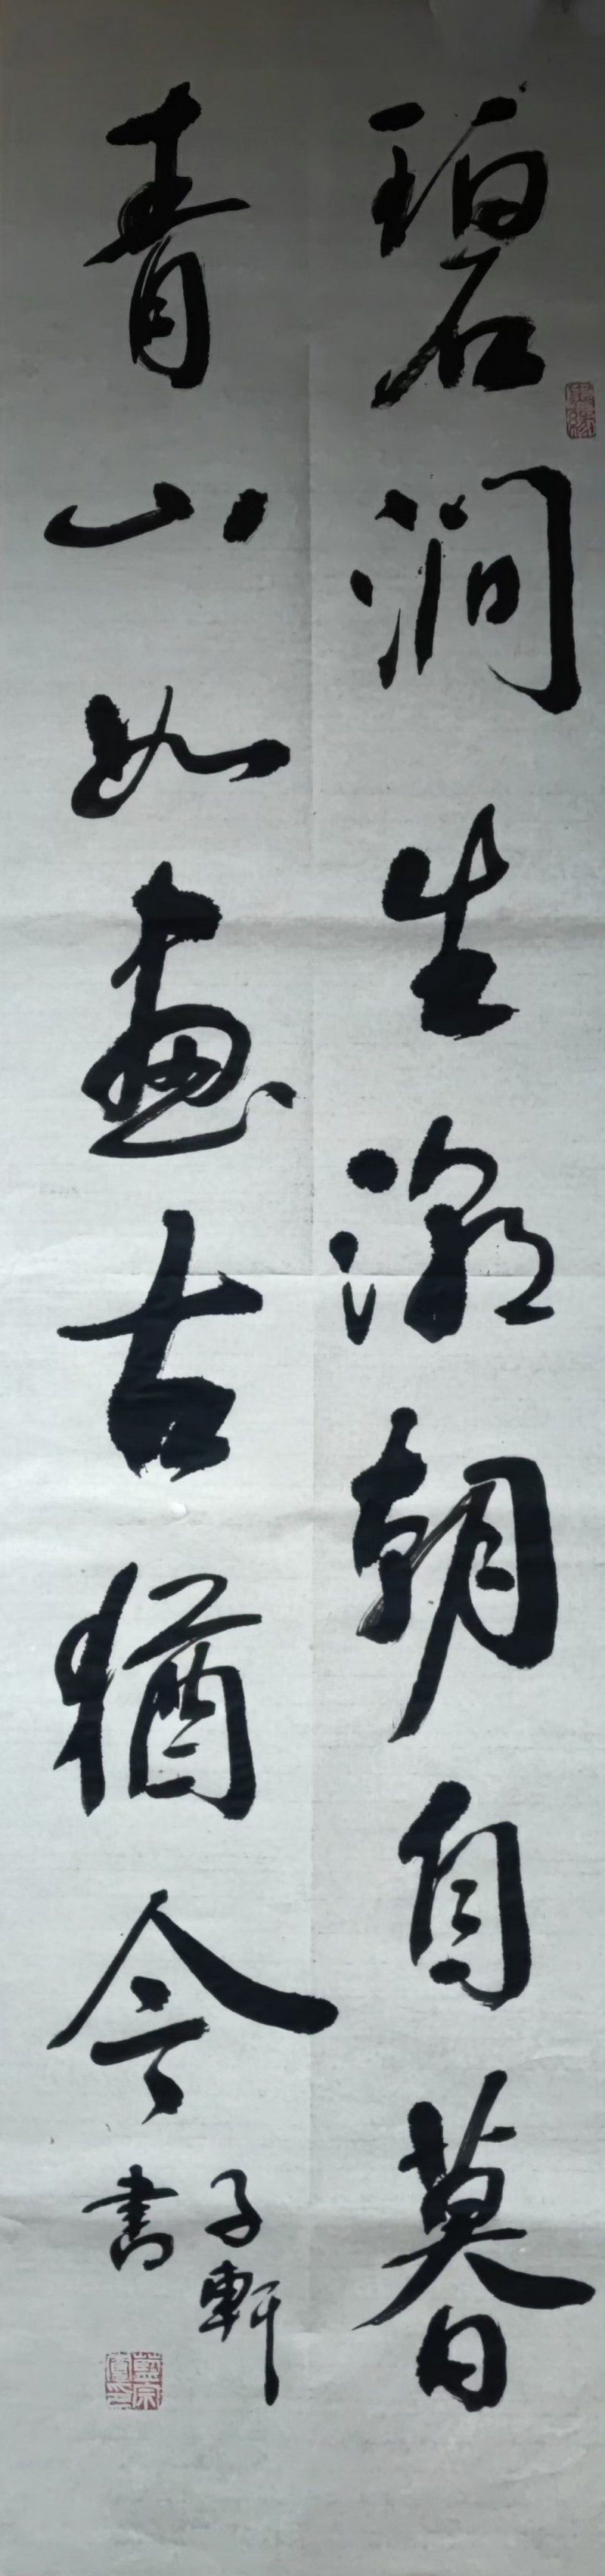 碧涧生潮朝自暮
青山如畫古猶今
子軒
書